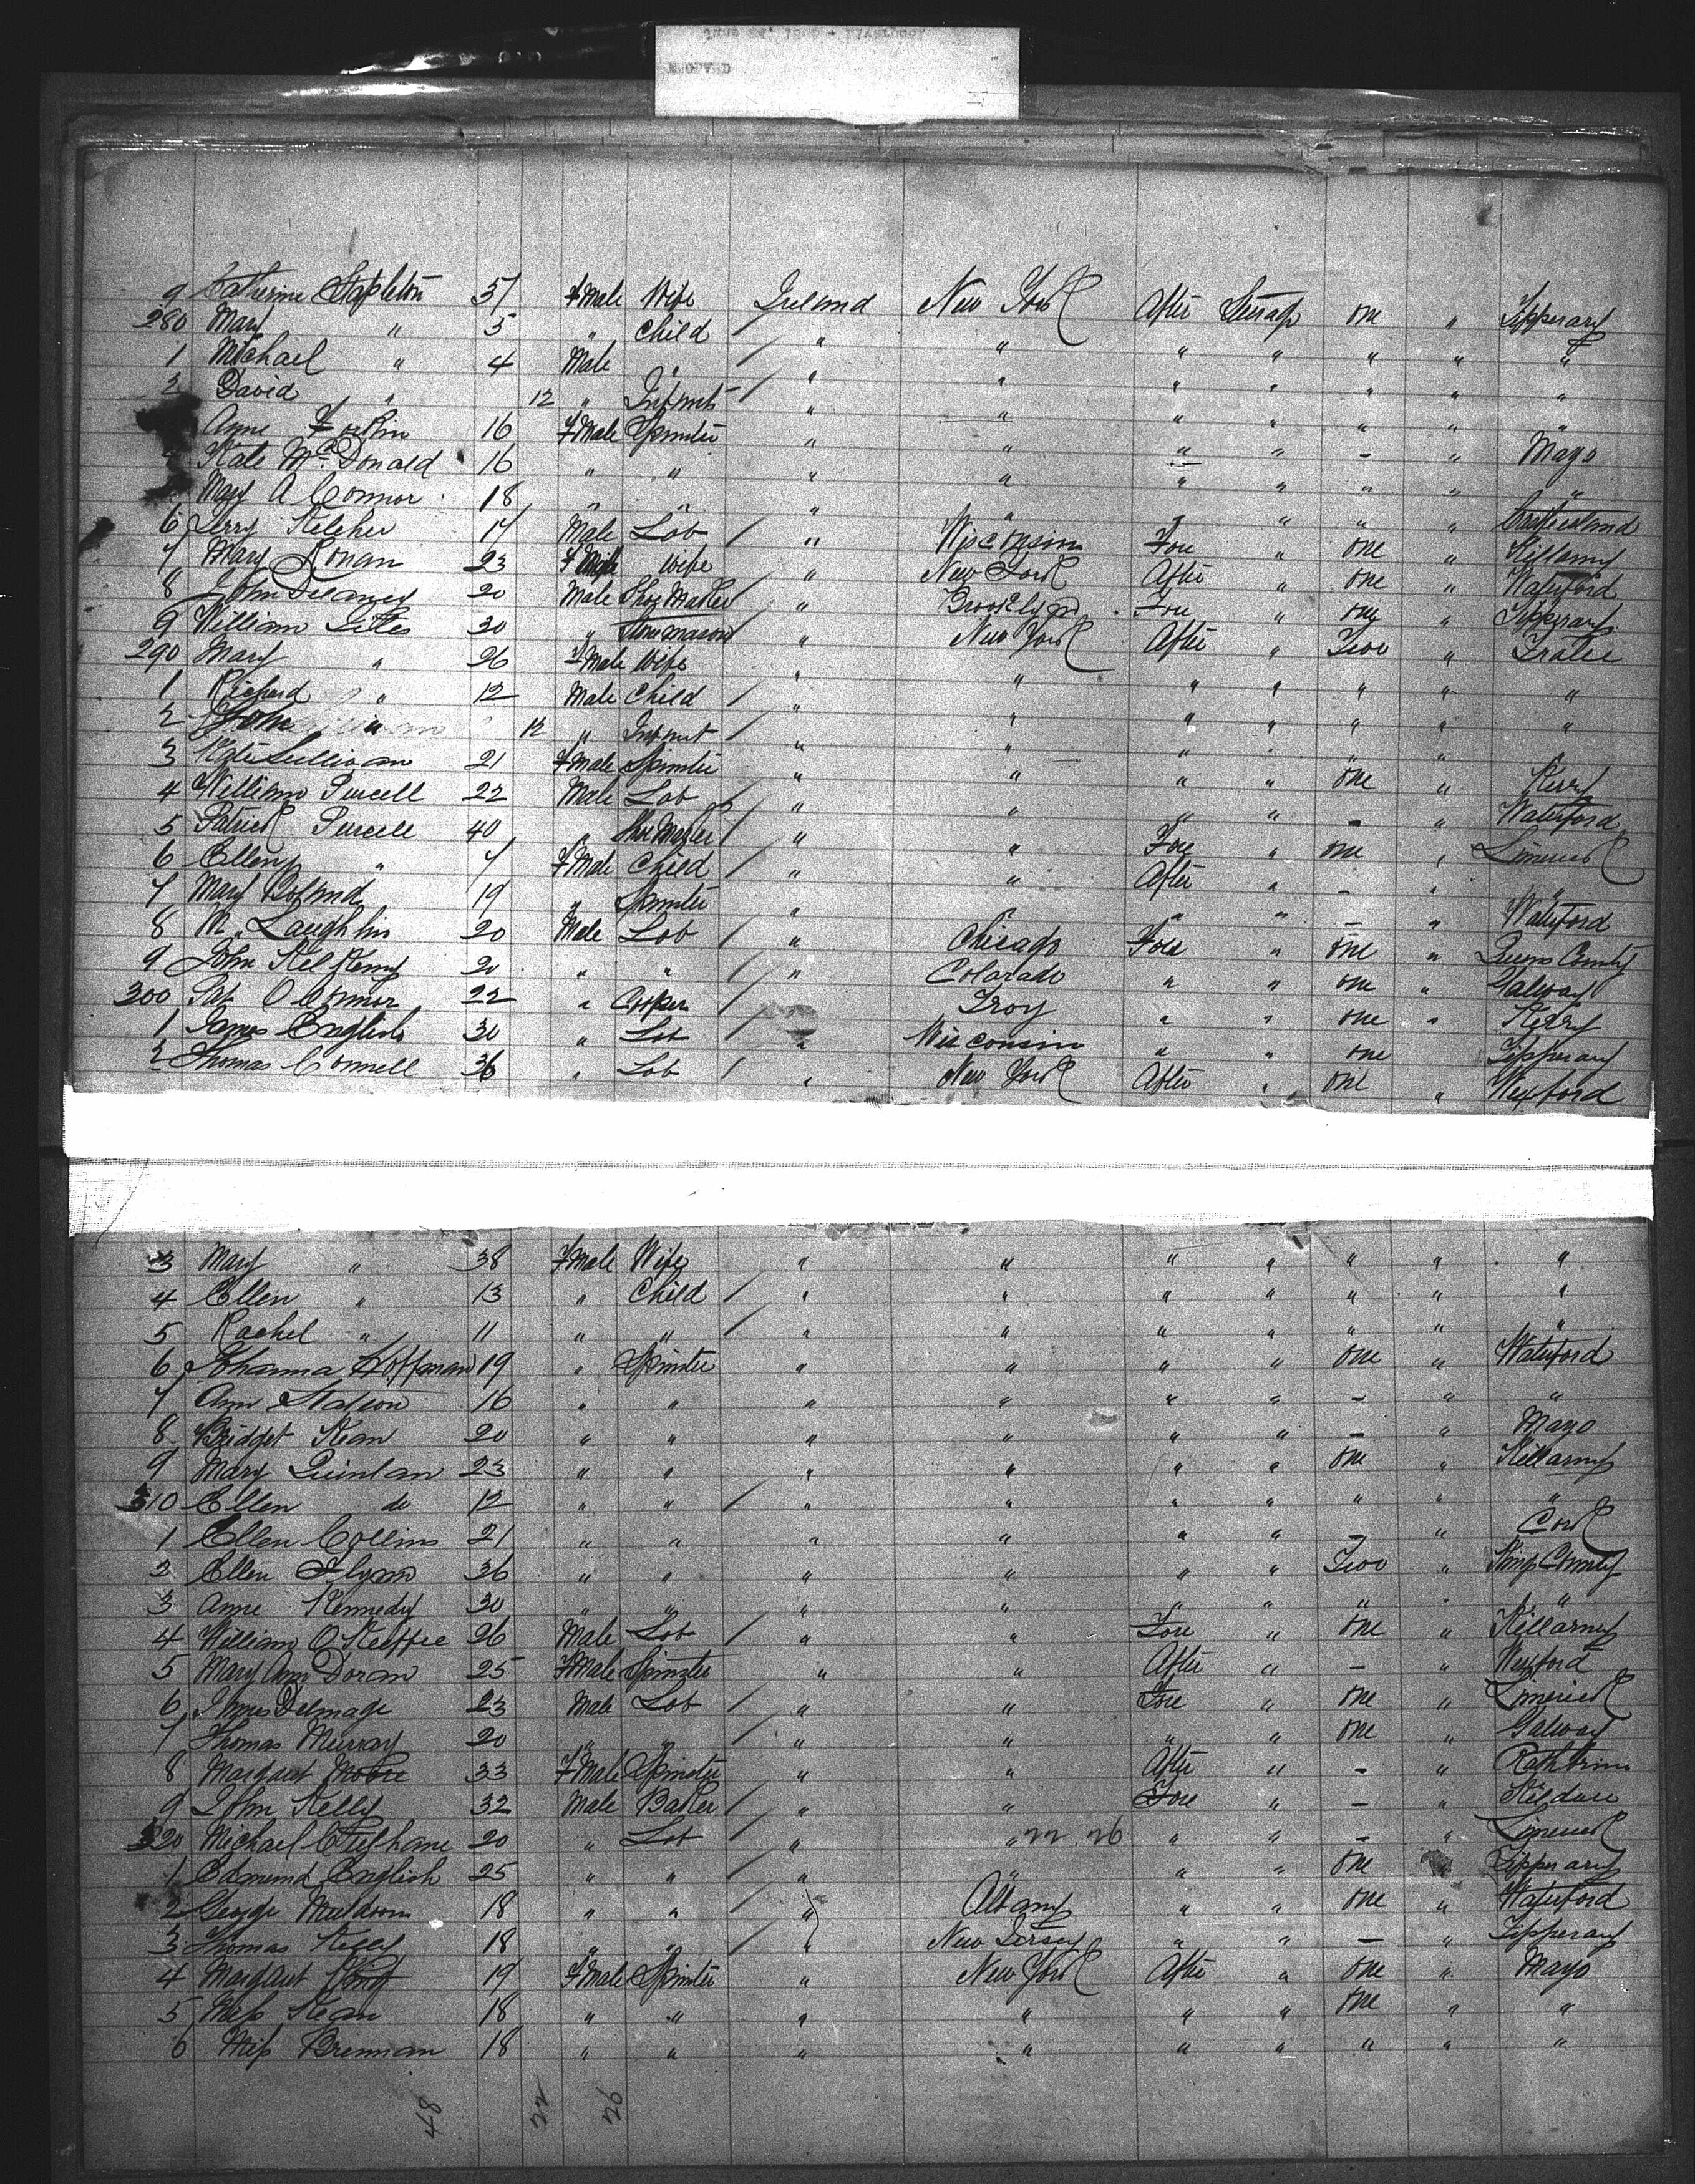 9 Catherine Stapleton 37 Fmale Wife Ireland New York After Steerage one " Tipperary
280 Mary " 5 " Child / " " " " " " "
1 Michael " 4 Male " / " " " " " " "
2 David " 12 " Infant / " " " " " " "
Anne 16 Fmale Spinster " " " " - " Mayo
4 Kate McDonald 16 " " " " " " " " "
Mary A Connor 18 " " " " " " " " Castleisland
6 Jerry Keleher 17 Male Lab / " Wisconsin Fore " one " Killarny
7 Mary Ronan 23 Fmale Wife " New York After " one " Waterford
8 John Delaney 20 Male Shoe Maker " Brooklyn Fore " one " Tipperary
9 William Giles 30 " Stone mason " New York After " Two " Tralee
290 Mary " 26 Fmale Wife " " " " " " "
1 Richard " 12 Male Child / " " " " " " "
2 " 12 " Infant / " " " " " "
3 Kate Sullivan 21 Fmale Spinster " " " " one " Kerry
4 William Purcell 22 Male Lab / " " " " - " Waterford
5 Patrick Purcell 40 " Shoe Maker / " " Fore " one " Limerick
6 Ellen " 7 Fmale Child / " " After " - " "
7 Mary Boland 19 " Spinster " " " " - " Waterford
8 M. Laughlin 20 Male Lab / " Chicago Fore " one " Queens County
9 John Kilkenny 20 " " / " Colorado " " one " Galway
300 Pat O Connor 22 " Cooper / Troy " " one " Kerry
1 James English 30 " Lab / " Wisconsin " " one Tipperary
2 Thomas Connell 36 " Lab / " New York After " one " Wexford
3 Mary " 38 Fmale Wife " " " " " " "
4 Ellen " 13 " Child / " " " " " " "
5 Rachel " 11 " " / " " " " " " "
6 Johanna Hoffman 19 " Spinster " " " " one " Waterford
7 Ann 16 " " " " " " - " "
8 Bridget Kean 20 " " " " " " - " Mayo
9 Mary Quinlan 23 " " " " " " one " Killarny
310 Ellen do 12 " " / " " " " " " "
1 Ellen Collins 21 " " " " " " - " Cork
2 Ellen Flynn 36 " " " " " " Two " Kings County
3 Anne Kennedy 30 " " " " " " " " "
4 William O Keeffee 26 Male Lab / " " Fore " one " Killarny
5 Mary Ann Doran 25 Fmale Spinster " " After " - " Wexford
6 James Delmage 23 Male Lab / " " Fore " one " Limerick
7 Thomas Murray 20 " " / " " " " one " Galway
8 Margaret Moore 33 Fmale Spinster " " After " - "
9 John Kelly 32 Male Baker / " " Fore " - " Kildare
320 Michael Culhane 20 " Lab / " " 22 26 " " - " Limerick
1 Edmund English 25 " " / " " " " one " Tipperary
2 George Muldoon 18 " " / " Albany " " one " Waterford
3 Thomas Kelly 18 " " / " New Jersey " " - " Tipperary
4 Margaret 19 Fmale Spinster " New York After " one " Mayo
5 Miss Kean 18 " " " " " " one " "
6 Miss Brennan 18 " " " " " " " " "
48 22 26